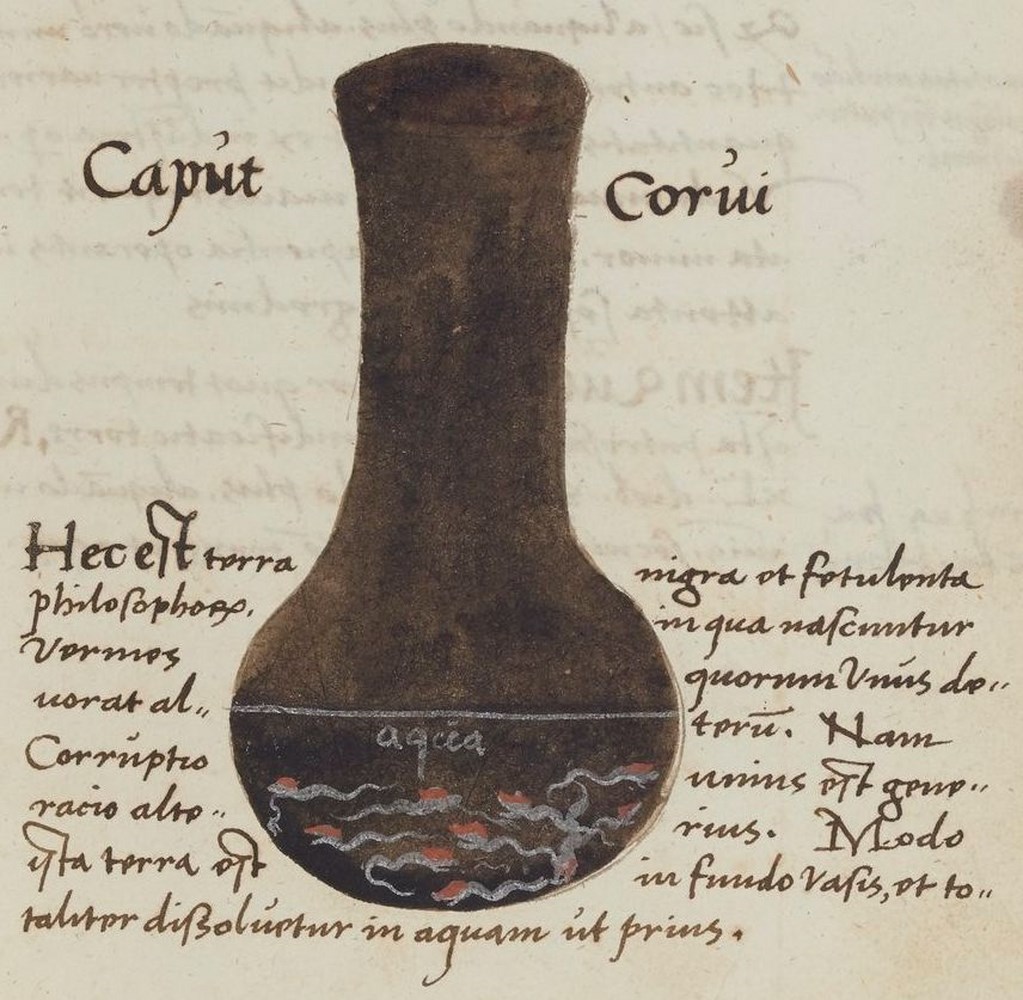 Caput Corui
Hec est terra nigra et fetulenta
philosophoꝝ, in qua nascuntur
Vermes quorum Vnus de„
uorat al„ terū. Nam
aqua
Corruptio unius est gene„
racio alte„ rius. Modo
ista terra est in fundo Vasis, et to„
taliter dissoluetur in aquam ut prius.